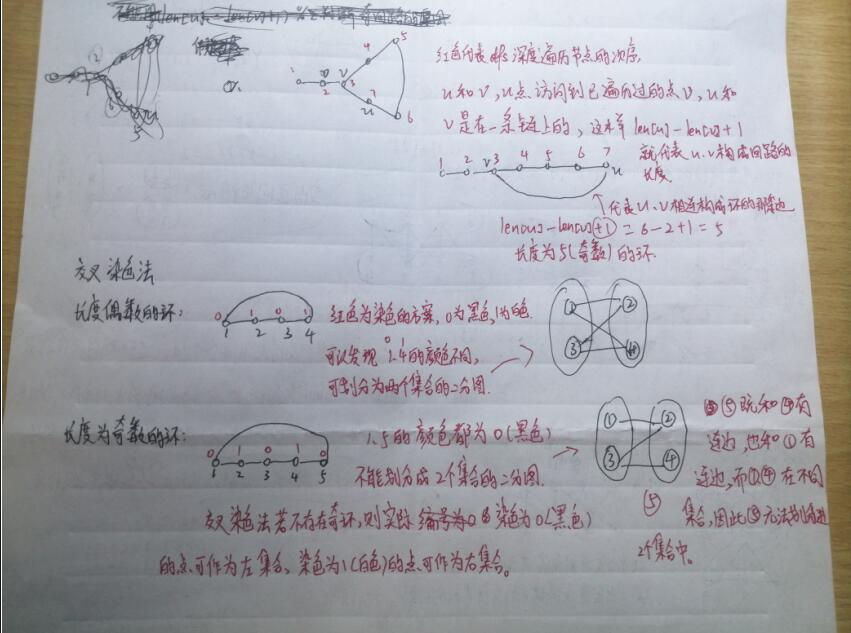 红色代表dfs深度遍历节点的次序,
u和v,u点访问到已遍历过的点v,u和
v是在一条长链上的,这样 len[u]-len[v]+1
就代表u、v构成回路的
长度.
1 2 v 3 4 5 6 7 u
代表u、v相连构成环的那条边
len[u]-len[v]+1=6-2+1=5
长度为5(奇数)的环.
交叉染色法
长度偶数的环:
0 1 0 1
1 2 3 4
红色为染色的方案,0为黑色,1为白色.
可以发现 1.4的颜色不同,
可划分为两个集合的二分图.
① ②
③ ④
长度为奇数的环:
0 1 0 1 0
1 2 3 4 5
1、5的颜色都为0(黑色)
不能划分成2个集合的二分图.
① ②
③ ④
⑤
⑤既和④有
连边,也和①有
连边,而①④在不同
集合,因此⑤无法划分进
2个集合中。
交叉染色法若不存在奇环,则实际染色为0(黑色)
的点可作为左集合、染色为1(白色)的点可作为右集合。